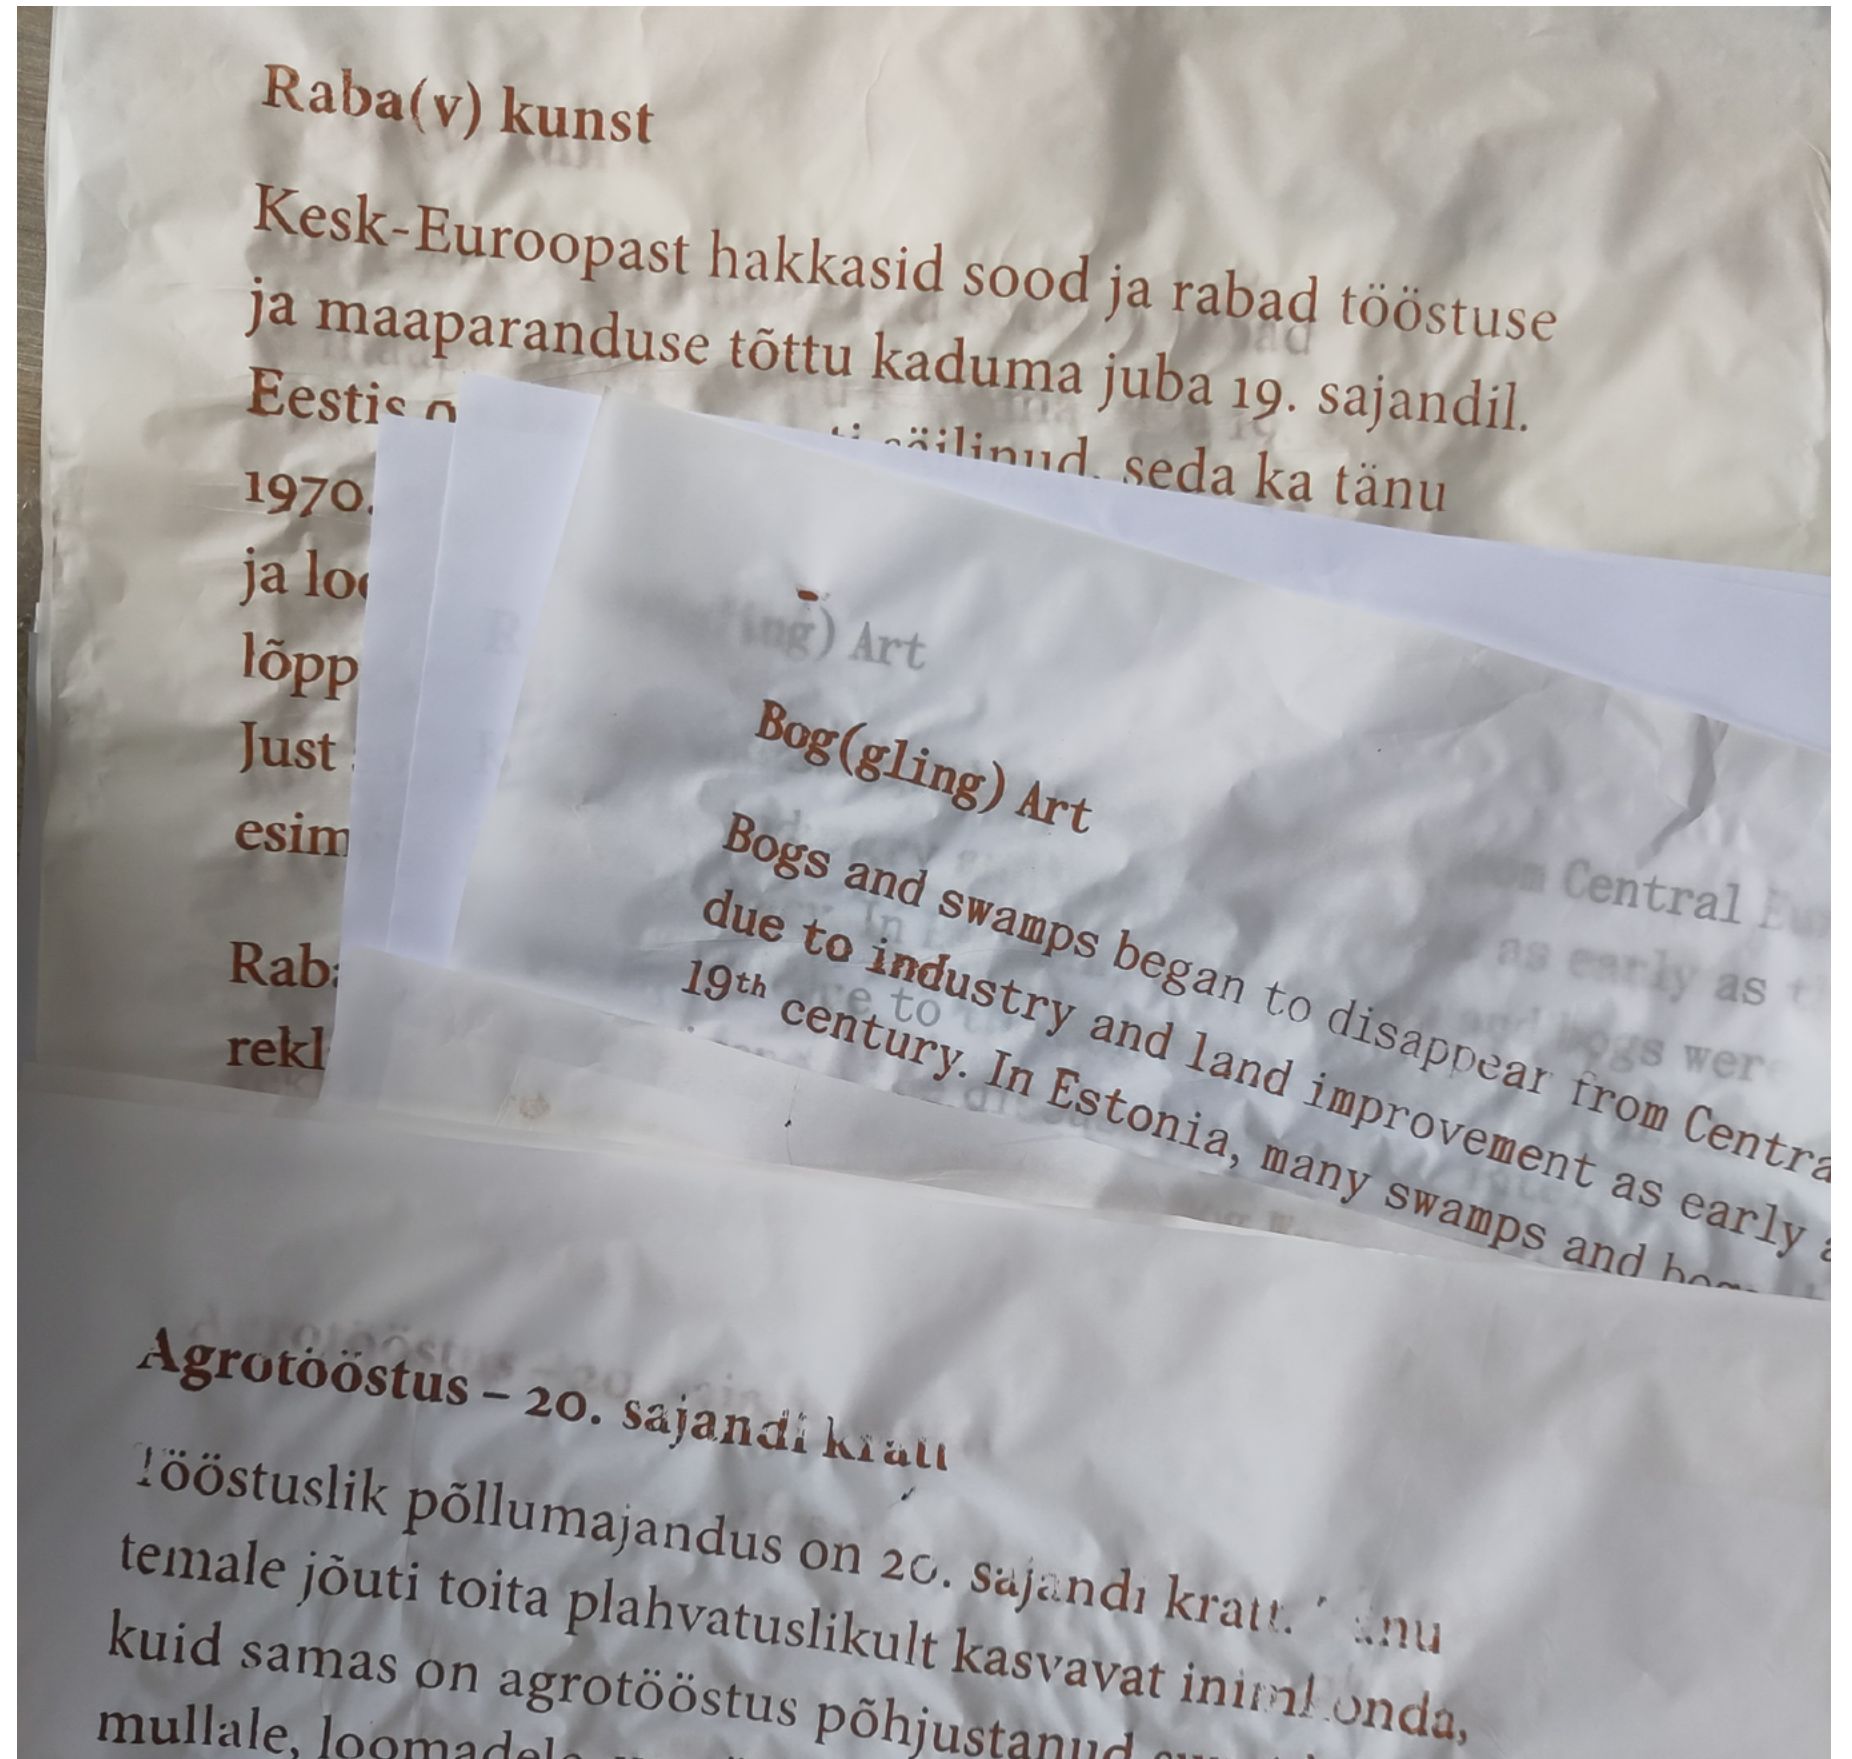 Raba(v) kunst
Kesk-Euroopast hakkasid sood ja rabad tööstuse
ja maaparanduse tõttu kaduma juba 19. sajandil.
seda ka tänu
1970.
ja
lõpp
Just
esim
rekl
ing) Art
Bog(gling) Art
Bogs and swamps began to disappear from Centra
due to industry and land improvement as early a
19th century. In Estonia, many swamps and
Central
as early as
and bogs wer
e to
Agrotööstus – 20. sajandi kratt
Tööstuslik põllumajandus on 20. sajandi kratt.
temale jõuti toita plahvatuslikult kasvavat inimkonda,
kuid samas on agrotööstus põhjustanud
mullale, loomadele